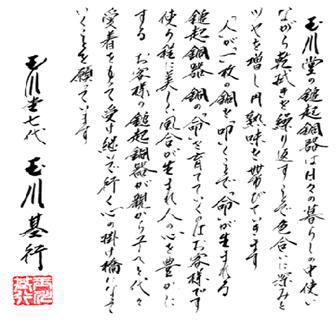 玉川堂の鎚起銅器は日々の暮らしの中使い
ながら乾拭きを繰り返すことで色合いに深みと
ツヤを増し円熟味を帯びていきます
人が一枚の銅を叩いくことで命が生まれる
鎚起銅器 銅の命を育てていくのはお客様です
使う程に美しい風合が生まれ人の心を豊かに
する お客様の鎚起銅器が親から子へと代々
愛着を以て受け継がれて行く心の掛け橋になって
いくことを願っています
玉川堂七代 玉川基行